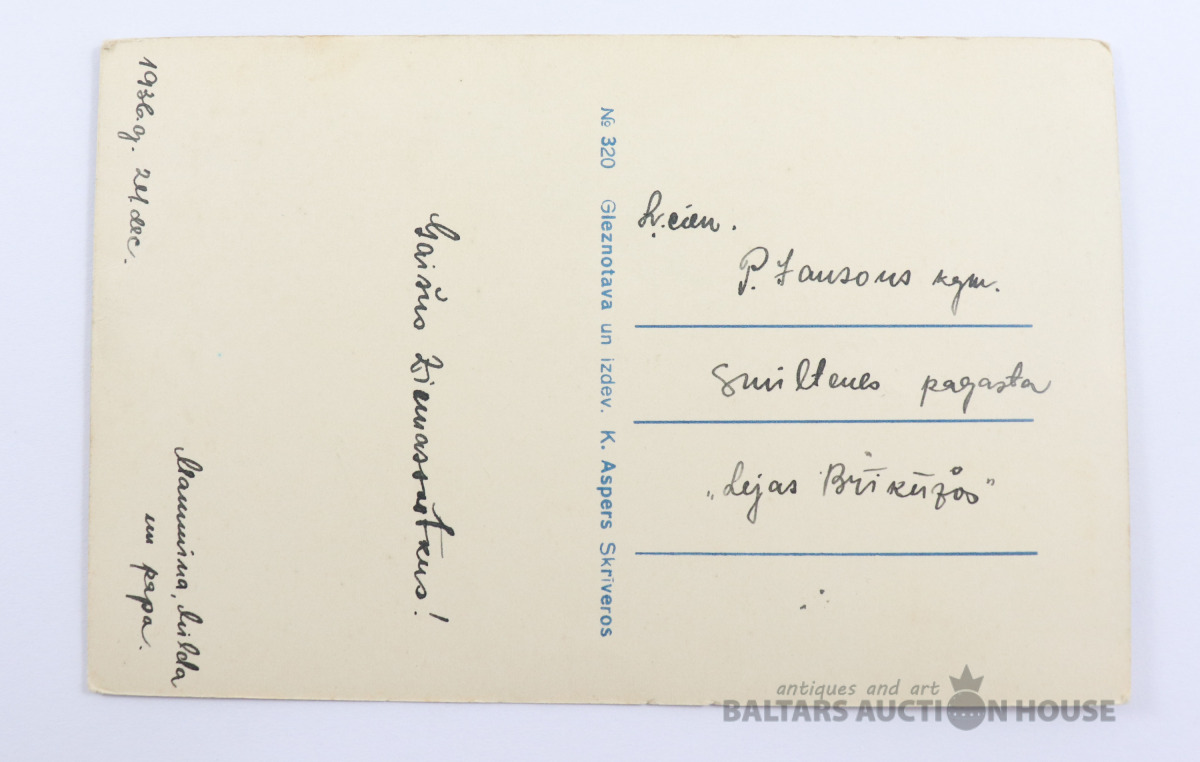 1936.g. 24 dec.
Gaišus Ziemassvētkus!
Mammiņa, Milda
un papa.
№ 320 Gleznotava un izdev. K. Aspers Skrīveros
Ļ. cien.
P. Jansons kgm.
Smiltenes pagasta
"Lejas
antiques and art
BALTARS AUCTION HOUSE